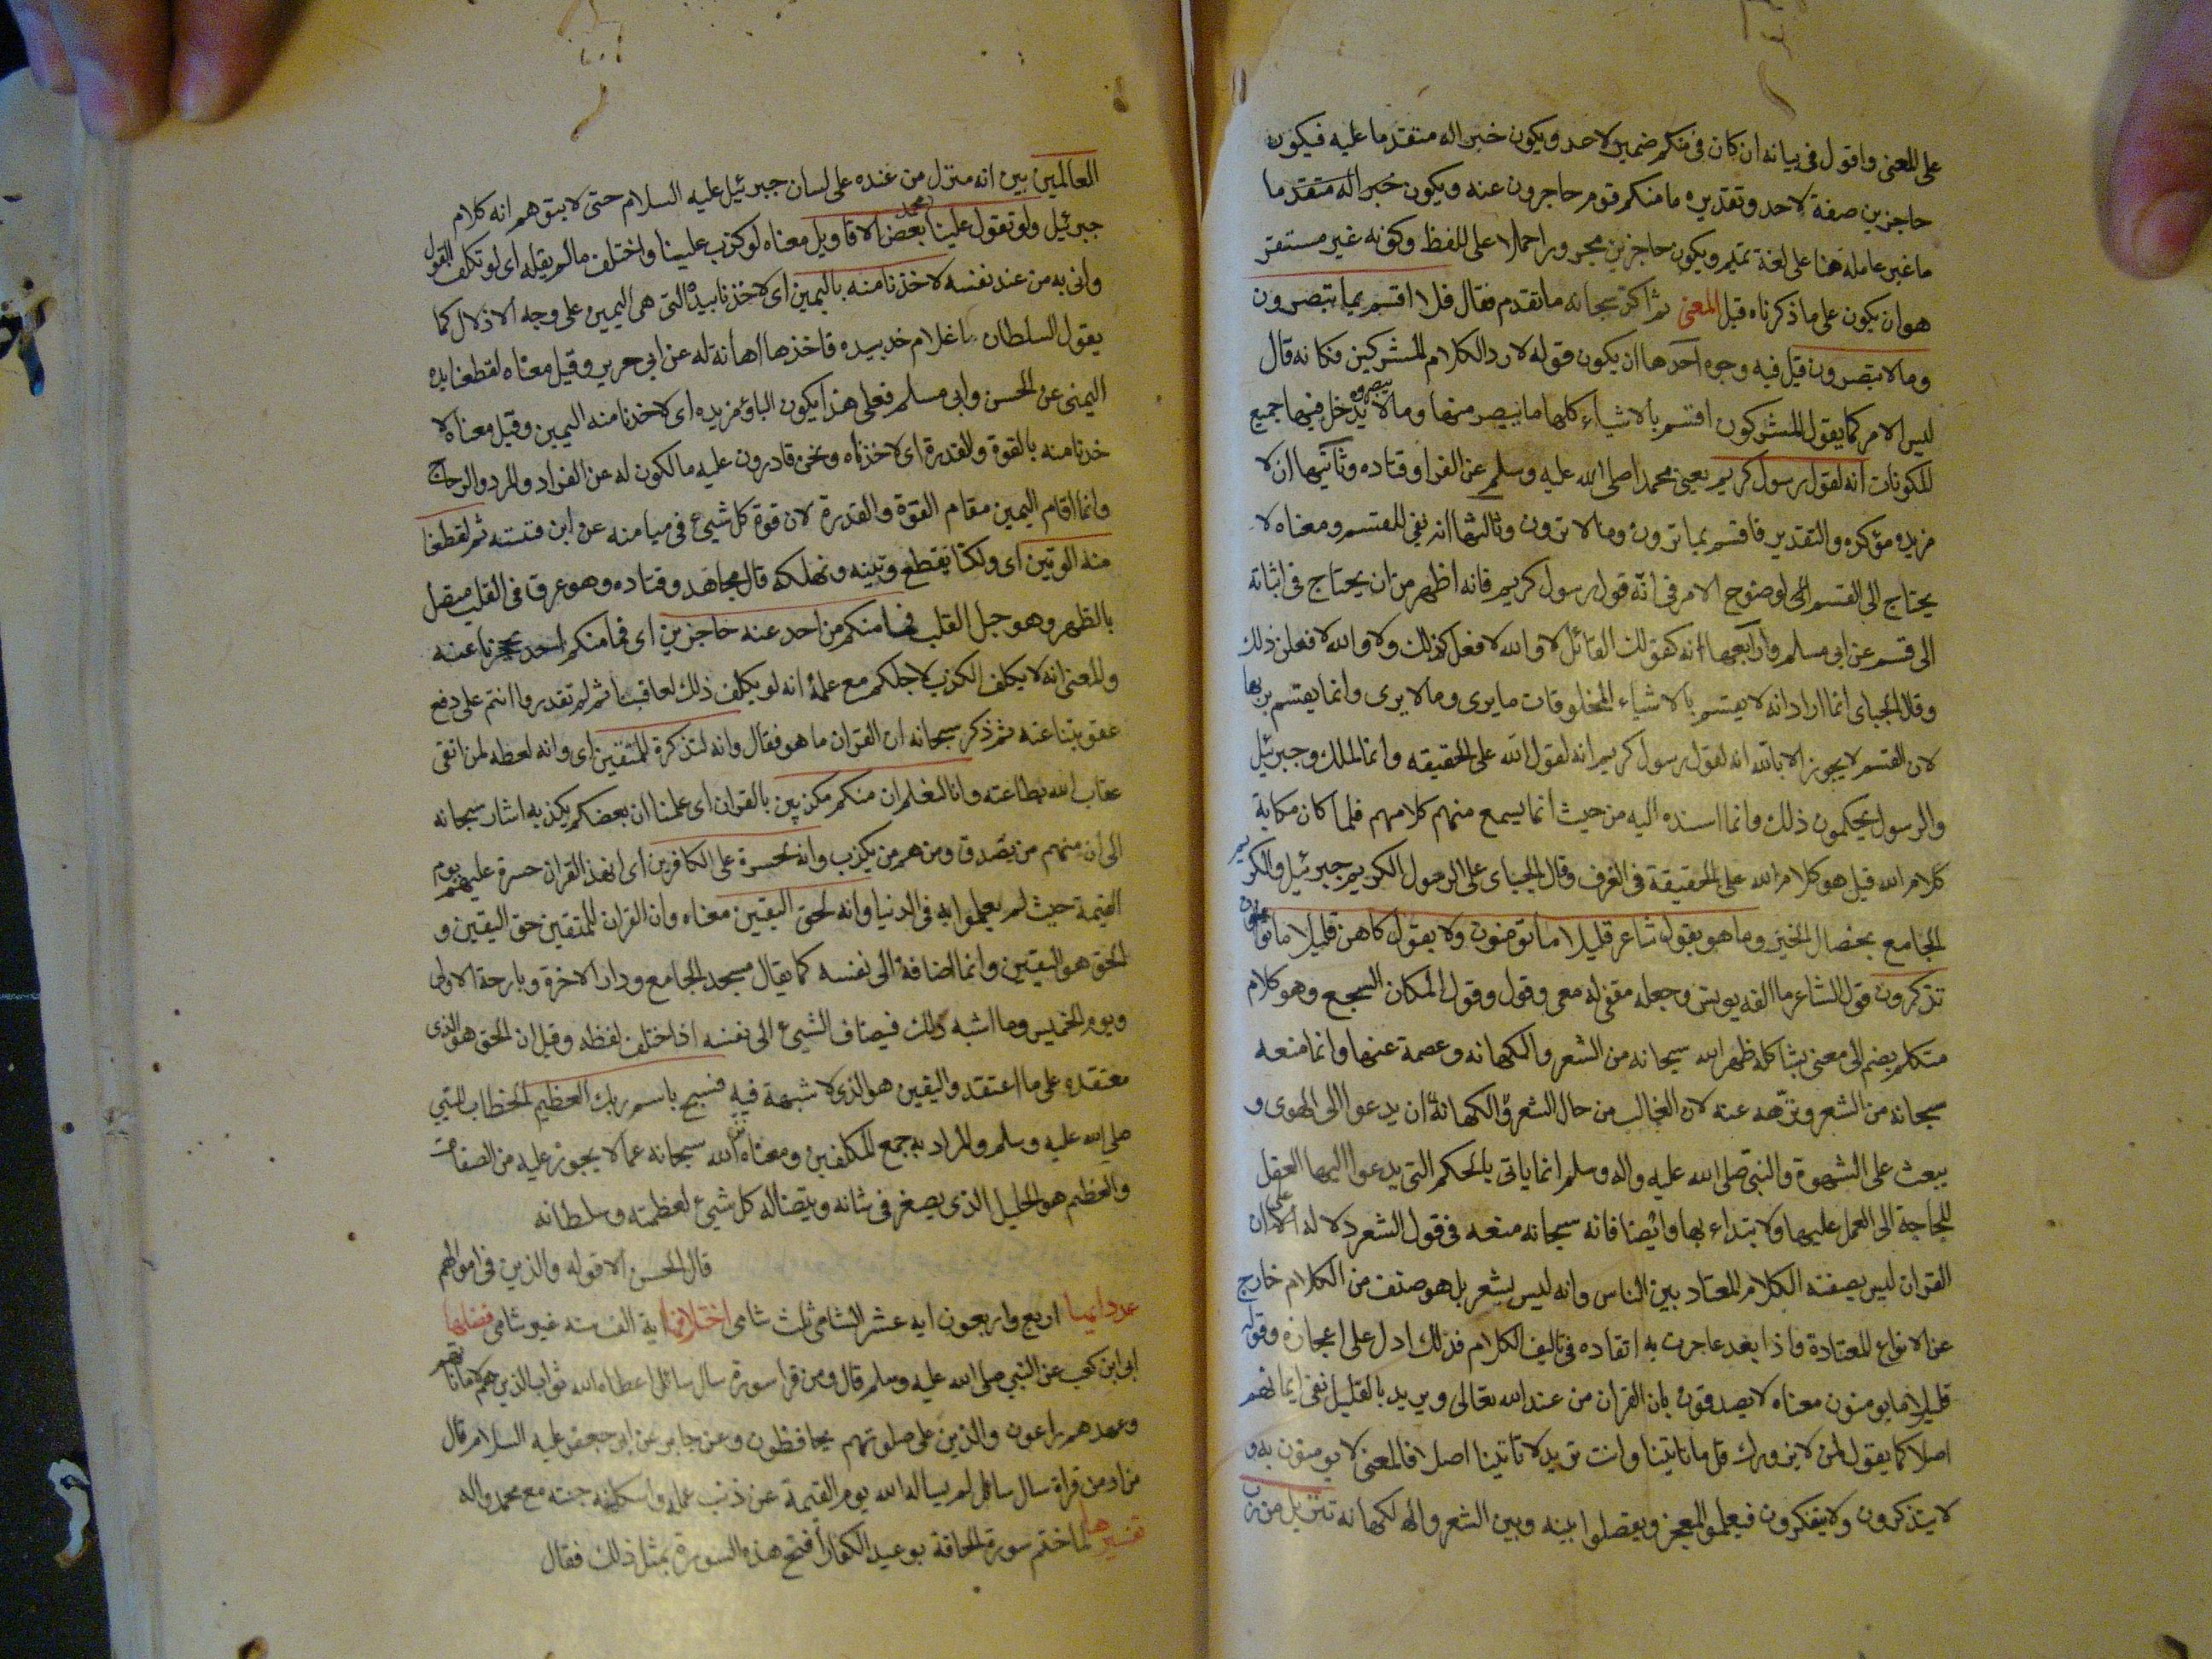 على المعنى واقول فى بيانه ان كان فى منكم ضمير لاحد ويكون خبرا له متقدما عليه فيكون
حاجزين صفة لاحد وتقديره ما منكم قوم حاجزون عنه ويكون خبرا له متقدما
ما غير عامله هنا على لغة تميم ويكون حاجزين مجرورا حملا على اللفظ وكونه غير مستقر
هو ان يكون على ما ذكرناه قبل المعنى ثم اكد سبحانه ما تقدم فقال فلا اقسم بما تبصرون
وما لا تبصرون قيل فيه وجوه احدها ان يكون قوله لا رد الكلام المشركين فكانه قال
ليس الامر كما يقول المشركون اقسم بالاشياء كلها ما يبصر منها وما لا يبصر ويدخل فيها جميع
المكونات انه لقول رسول كريم يعنى محمدا صلى الله عليه وسلم عن الفرا وقتاده وثانيها ان لا
مزيده مؤكده والتقدير فاقسم بما ترون وما لا ترون وثالثها انه نفى للقسم ومعناه لا
يحتاج الى القسم الى لوضوح الامر فى انه قول رسول كريم فانه اظهر من ان يحتاج فى اثباته
الى قسم عن ابى مسلم ورابعها انه كقولك القائل لا والله لا فعل كذلك ولا والله لا فعلن ذلك
وقال الجباى انما اراد انه لا يقسم بالاشياء المخلوقات ما يرى وما لا يرى وانما يقسم بربها
لان القسم لا يجوز الا بالله انه لقول رسول كريم انه لقول الله على الحقيقه وانما الملك وجبرئيل
والرسول يحكون ذلك وانما اسنده اليه من حيث انما يسمع منهم كلامهم فلما كان حكاية
كلام الله قيل هو كلام الله على الحقيقة فى العرف وقال الجباى على الرسول الكريم جبرئيل والكريم
الجامع بخصال الخير وما هو بقول شاعر قليلا ما تومنون ولا بقول كاهن قليلا ما
تذكرون قول الشاعر ما الفه بوزن وجعله مقفى له معنى وقول وقول المكان السجع وهو كلام
متكلم يضم الى معنى يشاكله ظهر الله سبحانه من الشعر والكهانه وعصمة عنها وانما منعه
سبحانه من الشعر ونزهه عنه لان الغالب من حال الشعر والكهانة ان يدعوا الى الهوى و
يبعث على الشهوة والنبى صلى الله عليه واله وسلم انما ياتى بالحكم التى يدعوا اليها العقل
للحاجة الى العمل عليها ولابتداء بها وايضا فانه سبحانه منعه فى قول الشعر دلالة على ان
القران ليس بصفته الكلام المعتاد بين الناس وانه ليس بشعر بل هو صنف من الكلام خارج
عن الانواع المعتادة واذا بعد عاجرت به اتقاده فى تاليف الكلام فذلك ادل على اعجازه وقوله
قليلا ما يومنون معناه لا يصدقون بان القران من عند الله تعالى ويريد بالقليل نفى ايمانهم
اصلا كما يقول لمن لا يزورك قل ما تاتينا وانت تريد لا تاتينا اصلا فالمعنى لا يومنون به و
لا يتذكرون ولا يتفكرون فيعلموا المعجز ويفصلوا بينه وبين الشعر والكهانه تنزيل من رب
العالمين بين انه منزل من عنده على لسان جبرئيل عليه السلام حتى لا يتوهم انه كلام
جبرئيل ولو تقول علينا محمد بعض الاقاويل معناه لو كذب علينا واختلف ما لم يقله اى لو تكلف القول
واتى به من عند نفسه لاخذنا منه باليمين اى لاخذنا بيده التى هى اليمين على وجه الاذلال كما
يقول السلطان يا غلام خذ بيده فاخذها اهانة له عن ابى جرير وقيل معناه لقطعنا يده
اليمنى عن الحسن وابى مسلم فعلى هذا يكون الباء مزيده اى لاخذنا منه اليمين وقيل معناه لا
خذنا منه بالقوة والقدرة اى لاخذناه ونحن قادرون عليه مالكون له عن الفراد والمرد والزجاج
وانما اقام اليمين مقام القوة والقدرة لان قوة كل شىء فى ميامنه عن ابن قتيبه ثم لقطعنا
منه الوتين اى ولكنا نقطع وتينه ونهلكه قال مجاهد وقتاده وهو عرق فى القلب متصل
بالظهر وهو حبل القلب فما منكم من احد عنه حاجزين اى فما منكم احد يحجزنا عنه
والمعنى انه لا يكلف الكذب لاجلكم مع علمه انه لو يكلف ذلك لعاقبناه ثم لم تقدروا انتم على دفع
عقوبتنا عنه ثم ذكر سبحانه ان القران ما هو فقال وانه لتذكرة للمتقين اى وانه لعظه لمن اتقى
عقاب الله بطاعته وانا لنعلم ان منكم مكذبين بالقران اى علمنا ان بعضكم يكذب به اشار سبحانه
الى ان منهم من يصدق ومنهم من يكذب وانه لحسرة على الكافرين اى ان هذا القران حسرة عليهم يوم
القيمة حيث لم يعملوا به فى الدنيا وانه لحق اليقين معناه وان القران للمتقين حق اليقين و
الحق هو اليقين وانما اضافة الى نفسه كما يقال مسجد الجامع ودار الاخرة وبارحة الاولى
ويوم الخميس وما اشبه ذلك فيضاف الشىء الى نفسه اذا اختلف لفظه وقيل ان الحق هو الذى
معتقده على ما اعتقد واليقين هو الذى لا شبهة فيه فسبح باسم ربك العظيم الخطاب للنبى
صلى الله عليه وسلم والمراد به جمع المكلفين ومعناه نزه الله سبحانه عما لا يجوز عليه من الصفات
والعظيم هو الجليل الذى يصغر فى شانه ويتضاله كل شىء لعظمته وسلطانه
قال الحسن الا قوله والذين فى اموالهم
عدد ايها اربع واربعون ايه عشر الشامى ثلث شامى اختلافها اية الف سنه غير شامى فضلها
ابى ابن كعب عن النبى صلى الله عليه وسلم قال ومن قرا سورة سال سائل اعطاه الله ثواب الذين هم لاماناتهم
وعهدهم راعون والذين على صلوتهم يحافظون وعن جابر عن ابى جعفر عليه السلام قال
من ادمن قراة سال سائل لم يساله الله يوم القيمة عن ذنب عمله واسكنه جنته مع محمد واله
تفسيرها لما ختم سورة الحاقة بوعيد الكفار افتح هذه السورة بمثل ذلك فقال